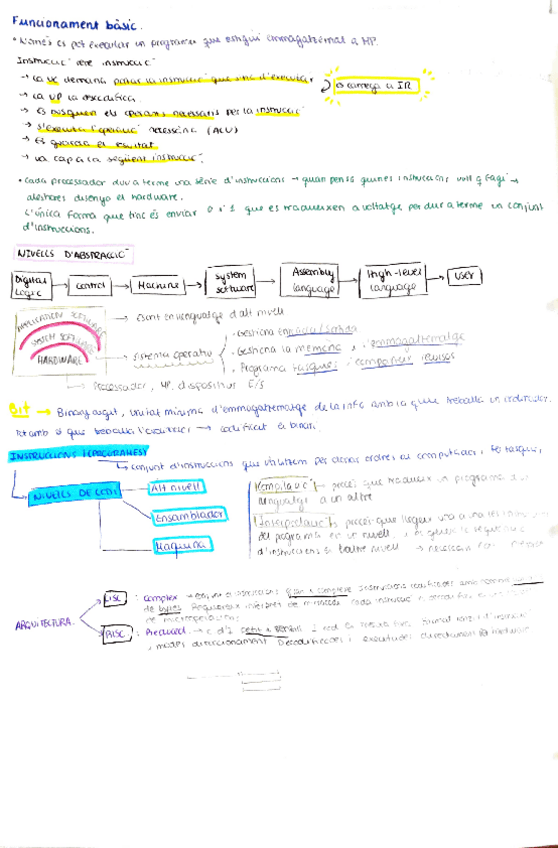 Funcionament bàsic.
* Només es pot executar un programa que estigui emmagatzemat a MP.
Instrucció rere instrucció
→ La UC demana portar la instrucció que s'ha d'executar → es carrega a IR
→ La UP la descodifica
→ Es busquen els operans necessaris per la instrucció
→ S'executa l'operació necessària (ALU)
→ Es guarda el resultat
→ Va cap a la següent instrucció.
• Cada processador duu a terme una sèrie d'instruccions → quan pensa quines instruccions vol q fagi →
aleshores disenya el hardware.
L'única forma que tinc és enviar 0 i 1 que es tradueixen a voltatge per dur a terme un conjunt
d'instruccions.
NIVELLS D'ABSTRACCIÓ
Digital Logic → Control → Machine → System software → Assembly language → High-level language → USER
APPLICATION SOFTWARE → Escrit en llenguatge d'alt nivell
SYSTEM SOFTWARE → Sistema operatiu
· Gestiona Entrada/Sortida
· Gestiona la memòria i l'emmagatzematge
· Programa tasques i comparteix recursos
HARDWARE → Processador, MP, dispositius E/S
Bit → Binary digit, unitat mínima d'emmagatzematge de la info amb la que treballa un ordinador.
També que treballa l'ordinador → codificat en binari.
INSTRUCCIONS (PROGRAMES)
→ conjunt d'instruccions que utilitzem per donar ordres al computador, fer tasques,
NIVELLS DE CODI
Alt nivell
Ensamblador
Màquina
Compilació → procés que tradueix un programa d'un
llenguatge a un altre
Interpretació → procés que llegeix una a una les instruccions
del programa en un nivell, i executa la seqüència
d'instruccions en l'altre nivell → necessiten
ARQUITECTURA
CISC : Complex → conjunt d'instruccions gran i complexe. Instruccions
de bytes. Requereix intèrpret de cada instrucció
de microoperacions.
RISC : Reduced → c d'I petit i senzill.
, modes direccionament. Descodificades i executades directament hardware